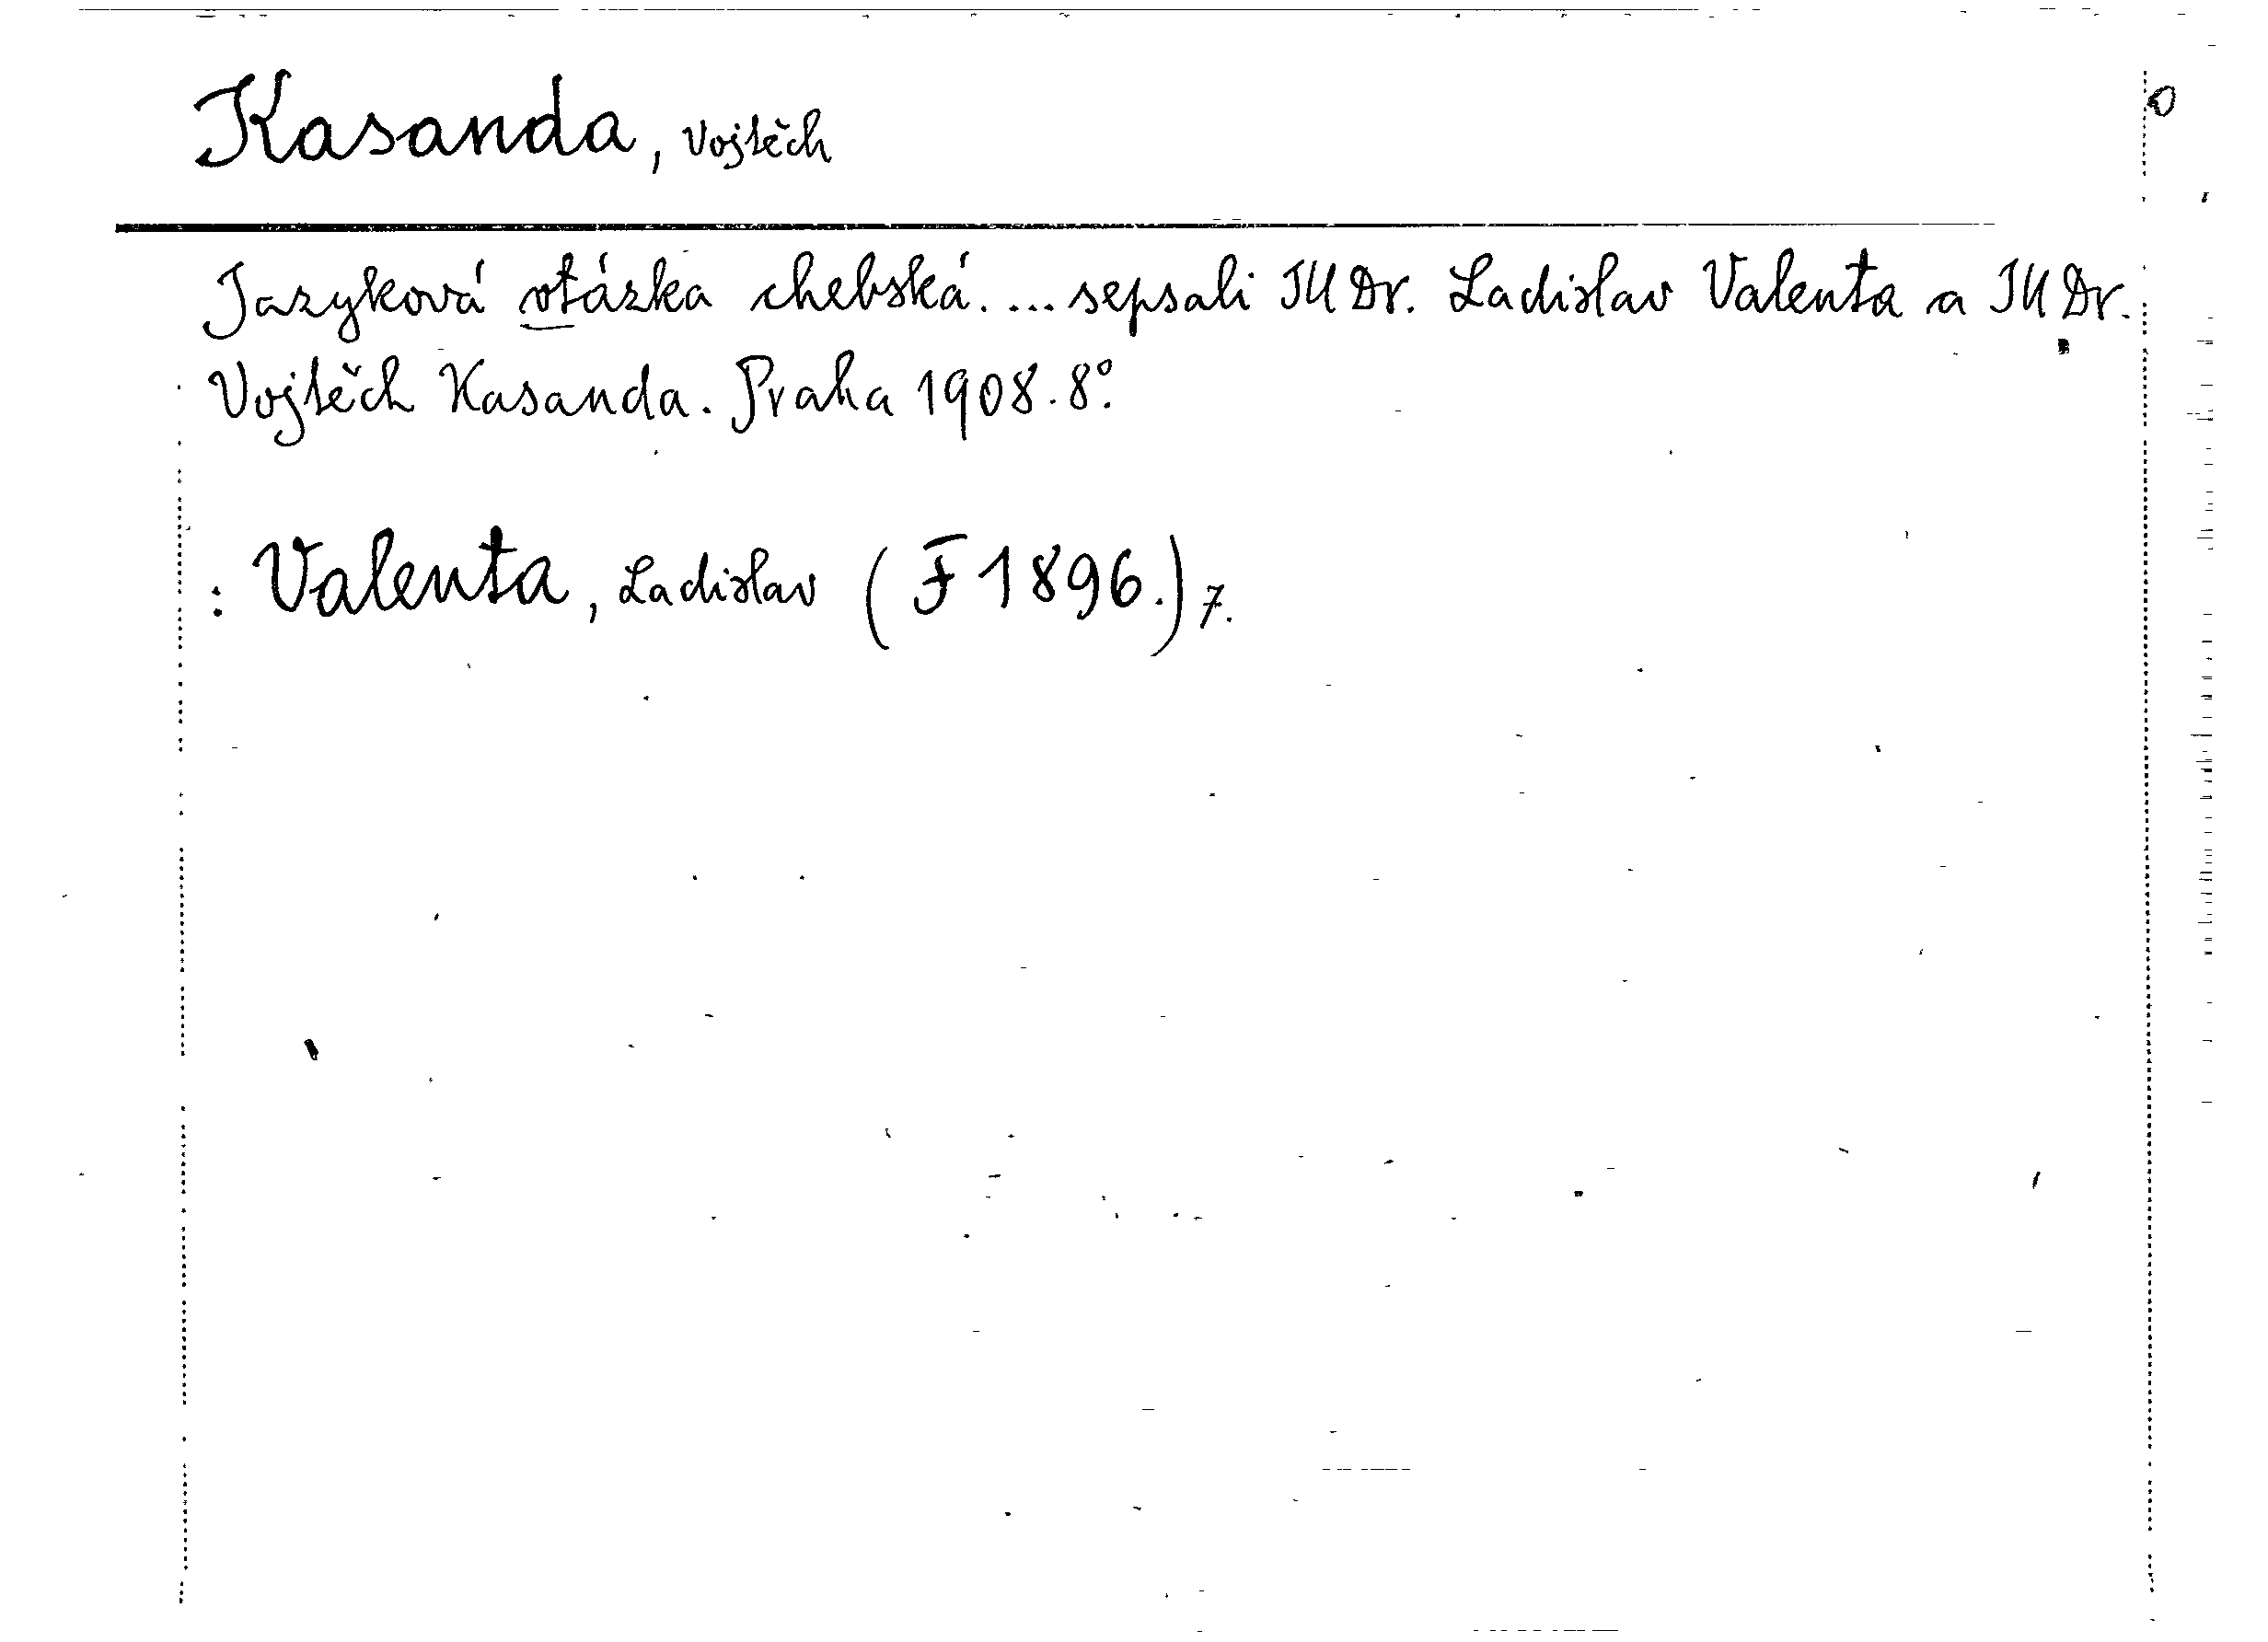 Kasanda, Vojtěch
Jazyková otázka chebská. ... sepsali JUDr. Ladislav Valenta a JUDr.
Vojtěch Kasanda. Praha 1908. 8°.
: Valenta, Ladislav (F 1896.) 7.